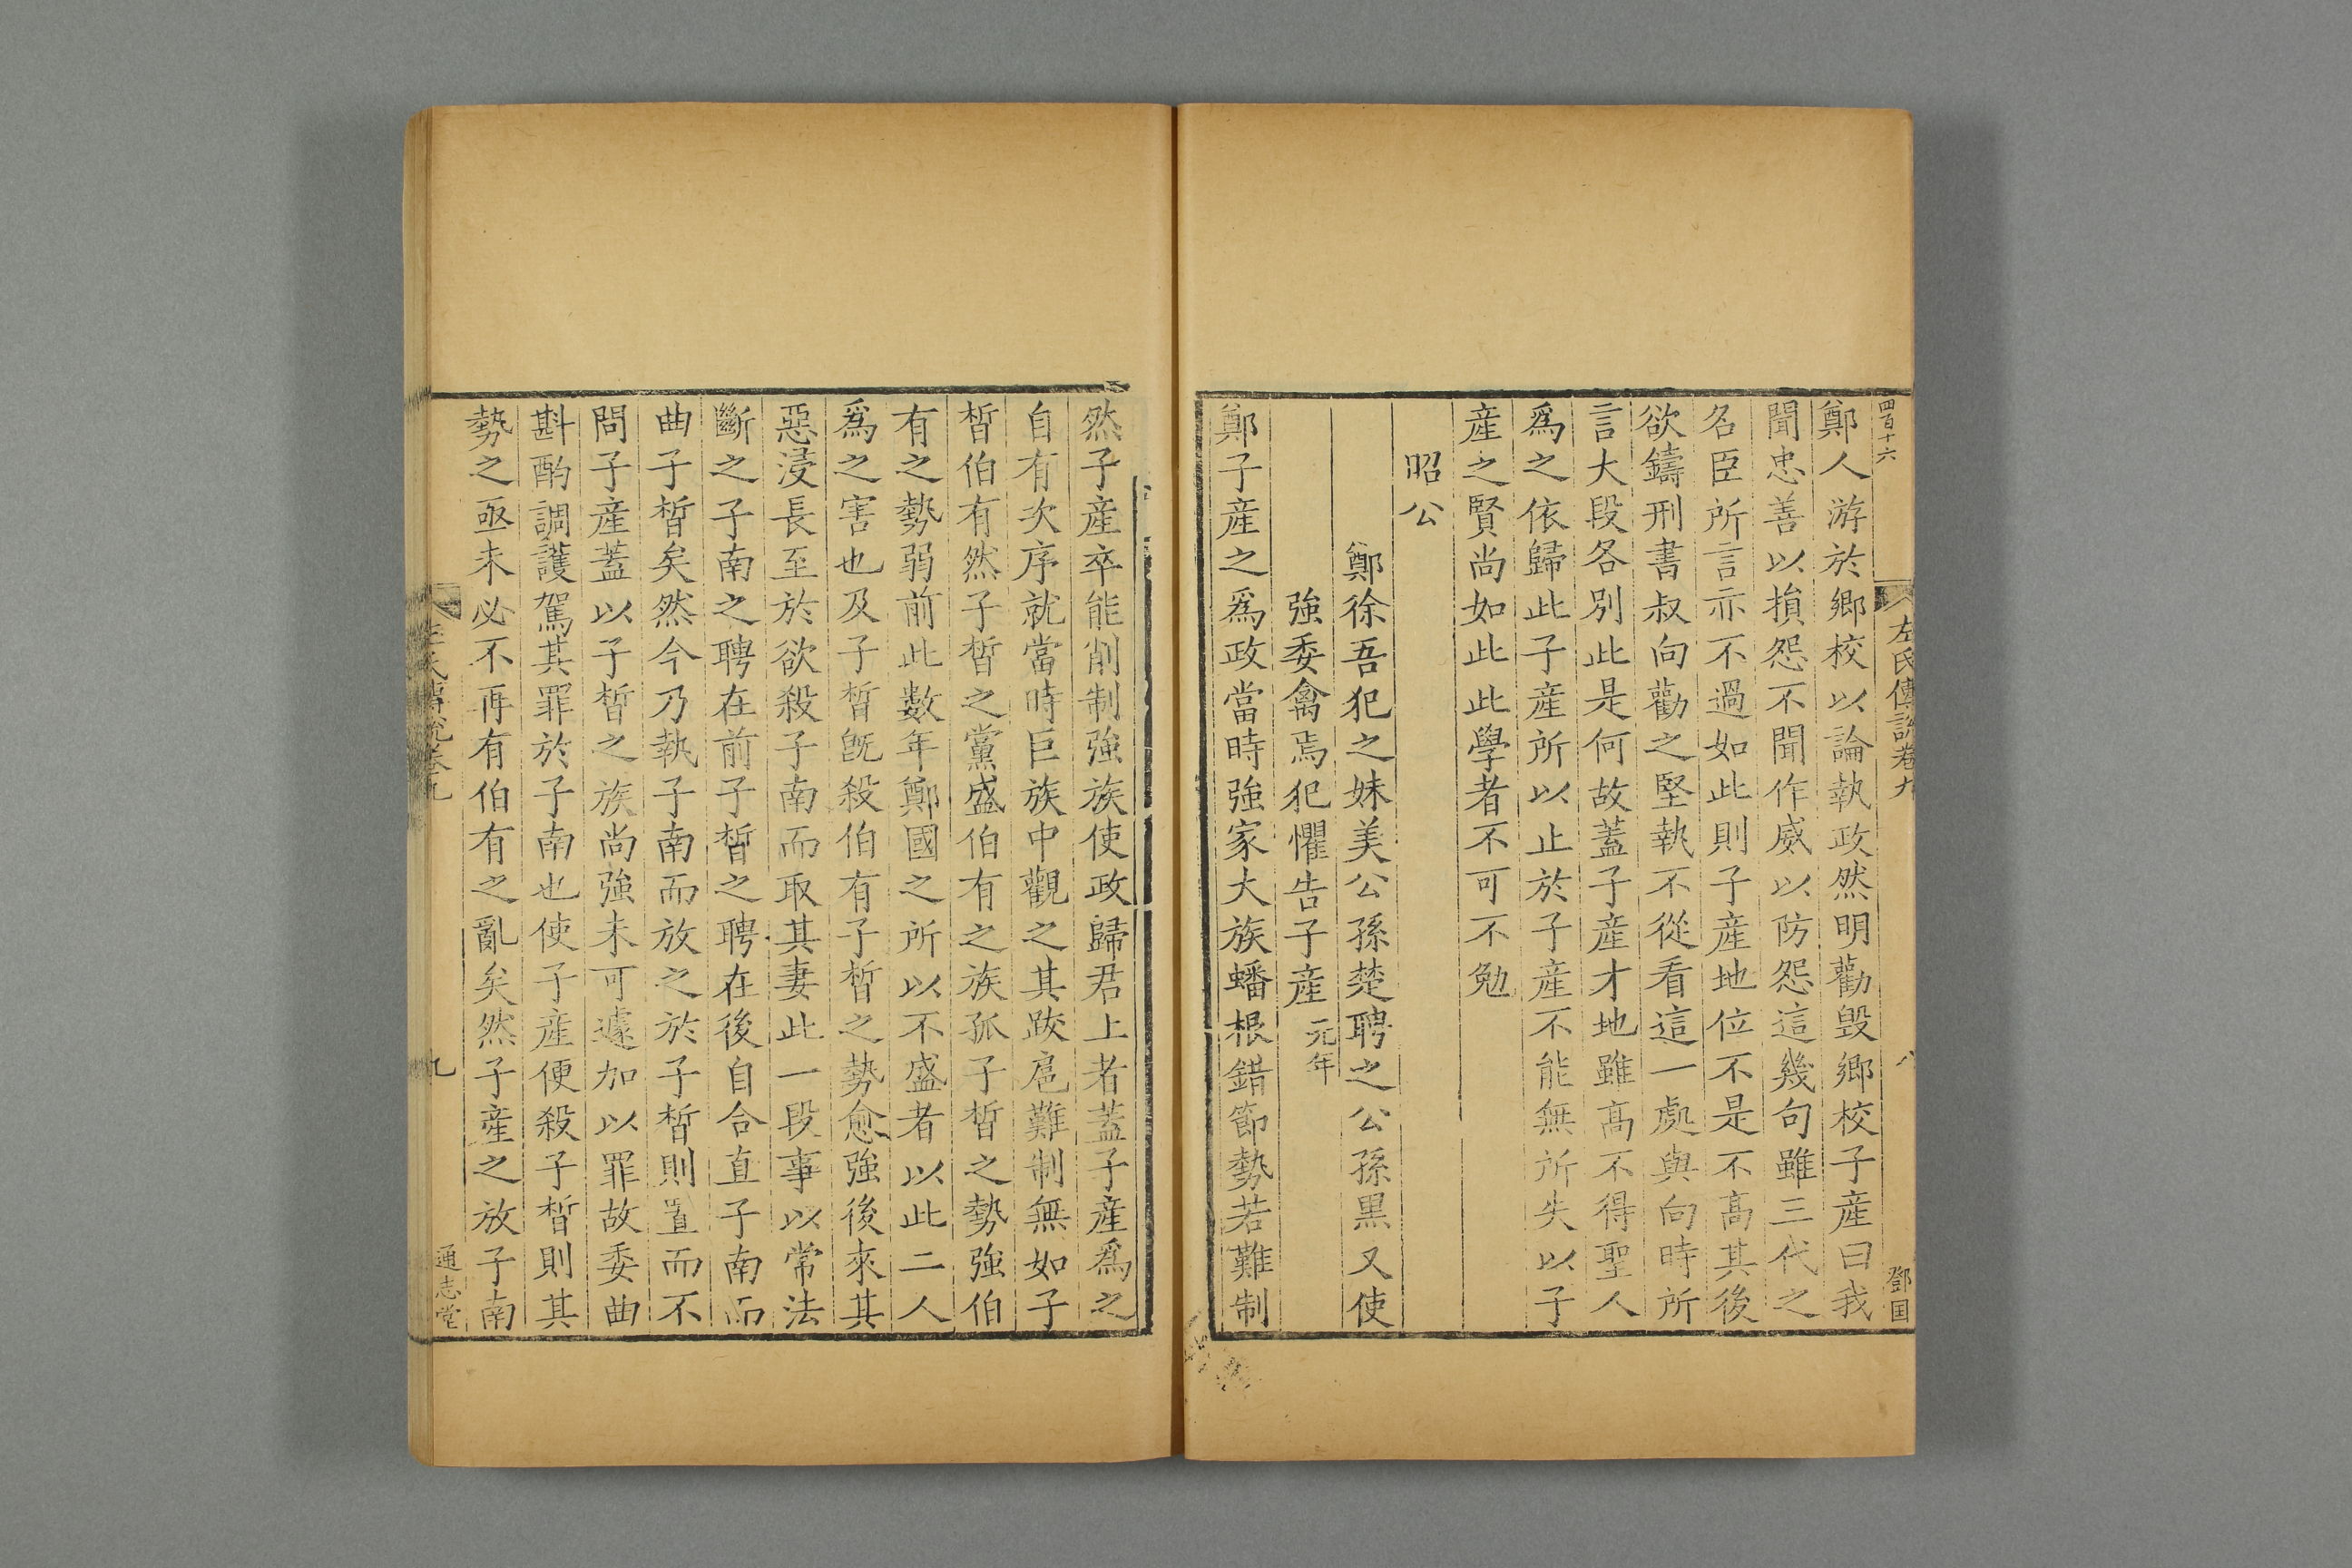 四百十六
左氏傳說卷九
八
鄧国
鄭人游於鄉校以論執政然明勸毀鄉校子產曰我
聞忠善以損怨不聞作威以防怨這幾句雖三代之
名臣所言亦不過如此則子產地位不是不高其後
欲鑄刑書叔向勸之堅執不從看這一處與向時所
言大段各別此是何故蓋子產才地雖高不得聖人
爲之依歸此子產所以止於子產不能無所失以子
產之賢尚如此此學者不可不勉
昭公
鄭徐吾犯之妹美公孫楚聘之公孫黑又使
強委禽焉犯懼告子產 元年
鄭子產之爲政當時強家大族蟠根錯節勢若難制
然子產卒能削制強族使政歸君上者蓋子產爲之
自有次序就當時巨族中觀之其跋扈難制無如子
晳伯有然子晳之黨盛伯有之族孤子晳之勢強伯
有之勢弱前此數年鄭國之所以不盛者以此二人
爲之害也及子晳旣殺伯有子晳之勢愈強後來其
惡浸長至於欲殺子南而取其妻此一段事以常法
斷之子南之聘在前子晳之聘在後自合直子南而
曲子晳矣然今乃執子南而放之於子晳則置而不
問子產蓋以子晳之族尚強未可遽加以罪故委曲
斟酌調護駕其罪於子南也使子產便殺子晳則其
勢之亟未必不再有伯有之亂矣然子產之放子南
左氏傳說卷九
九
通志堂